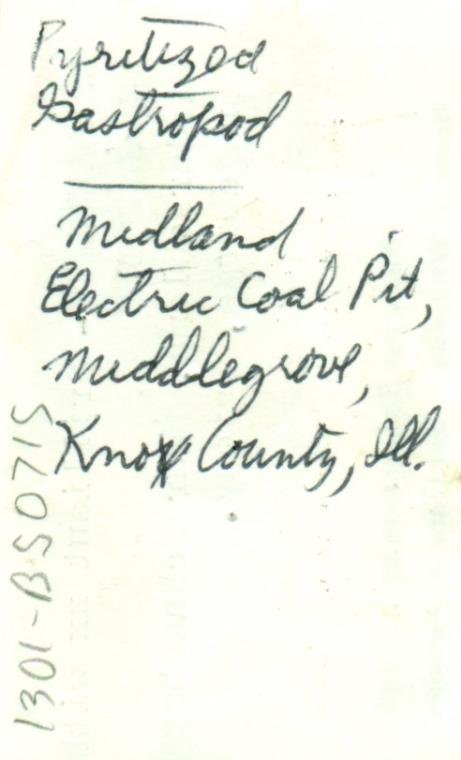 Pyritized
Gastropod
Midland
Electric Coal Pit,
Middlegrove,
Knox County, Ill.
1301-BS0715